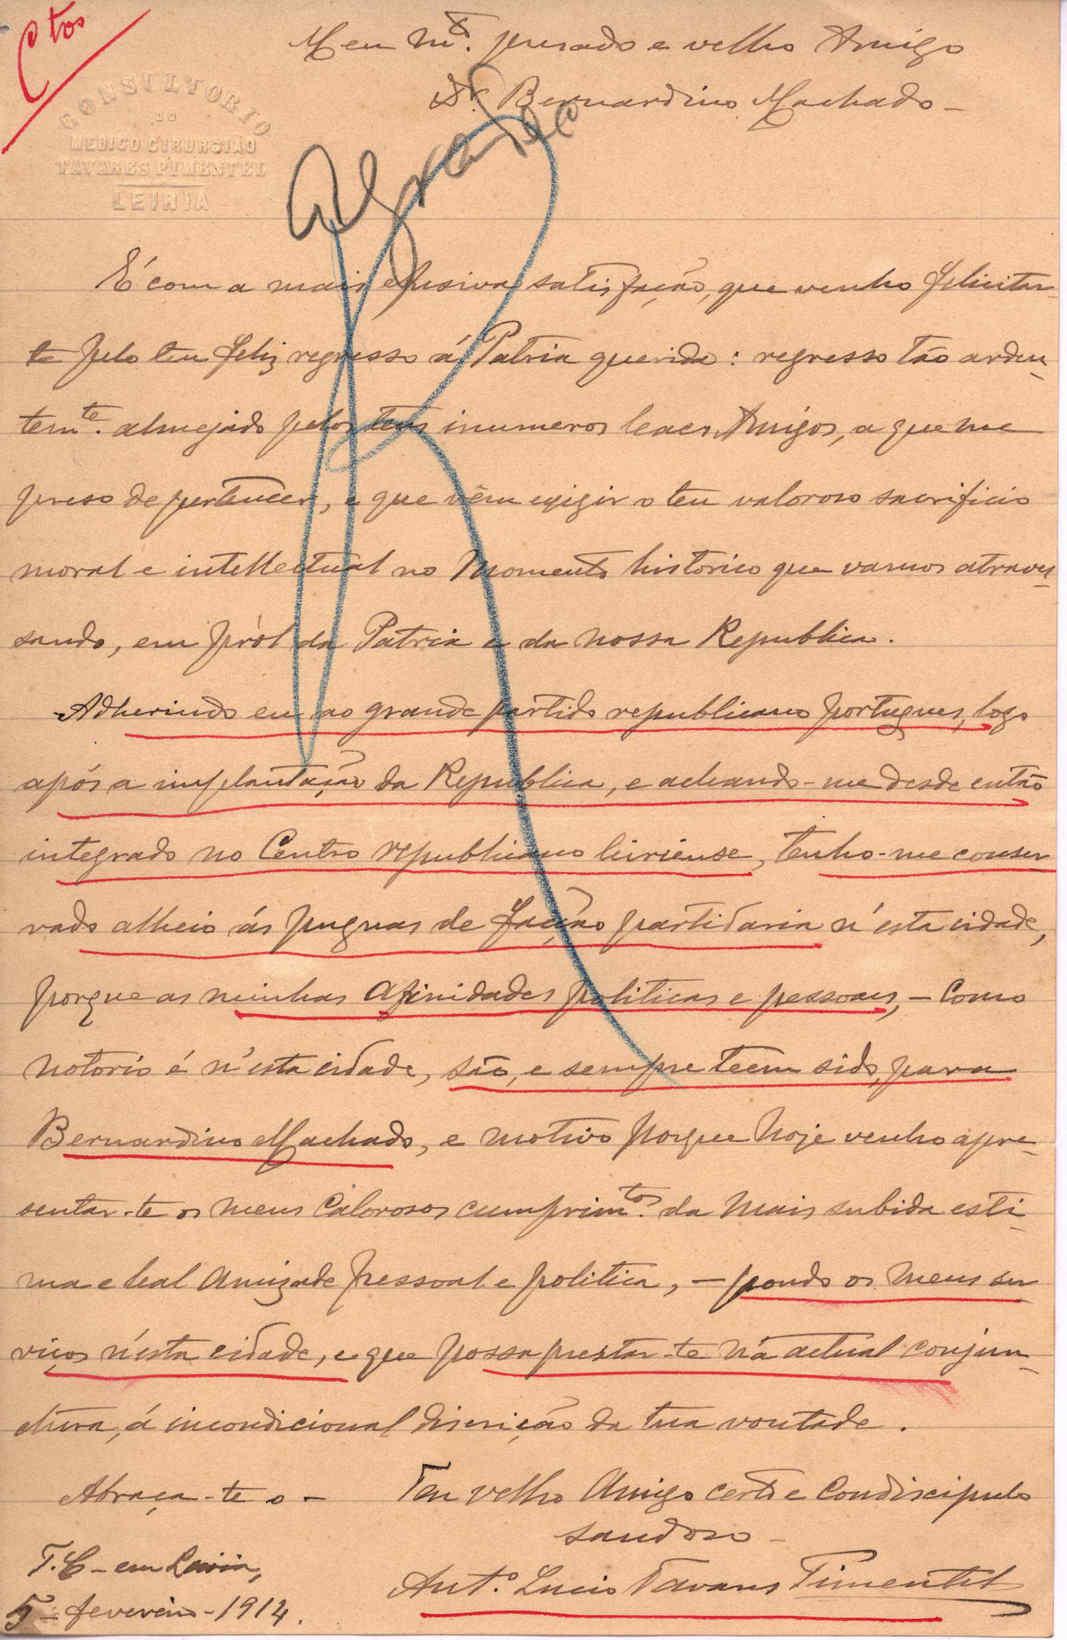 Ctos
CONSULTORIO
DO
MEDICO CIRURGIÃO
TAVARES PIMENTEL
LEIRIA
Meu mto. presado e velho Amigo
Dr. Bernardino Machado -
Agradeço
É com a mais efusiva satisfação, que venho felicitar-
te pelo teu feliz regresso á Patria querida: regresso tão arden-
temte. almejado pelos teus inumeros leaes Amigos, a que me
preso de pertencer, e que vêm exigir o teu valoroso sacrificio
moral e intellectual no momento historico que vamos atraves-
sando, em pról da Patria e da nossa Republica.
Adherindo eu ao grande partido republicano portugues, logo
após a implantação da Republica, e achando-me desde então
integrado no Centro republicano leiriense, tenho-me conser
vado alheio ás pugnas de facção partidaria n'esta cidade,
porque as minhas afinidades politicas e pessoaes, - como
notorio é n'esta cidade, são, e sempre teem sido, para
Bernardino Machado, e motivo porque hoje venho apre-
sentar-te os meus calorosos cumprimtos. da mais subida esti-
ma e leal amizade pessoal e politica, - pondo os meus ser
viços n'esta cidade, e que possa prestar-te na actual conjun-
ctura, á incondicional discrição da tua vontade.
Abraça-te o -
Teu velho Amigo certo e condiscipulo
saudoso -
T. C. - em Leiria,
5 - fevereiro - 1914.
Anto. Lucio Tavares Pimentel